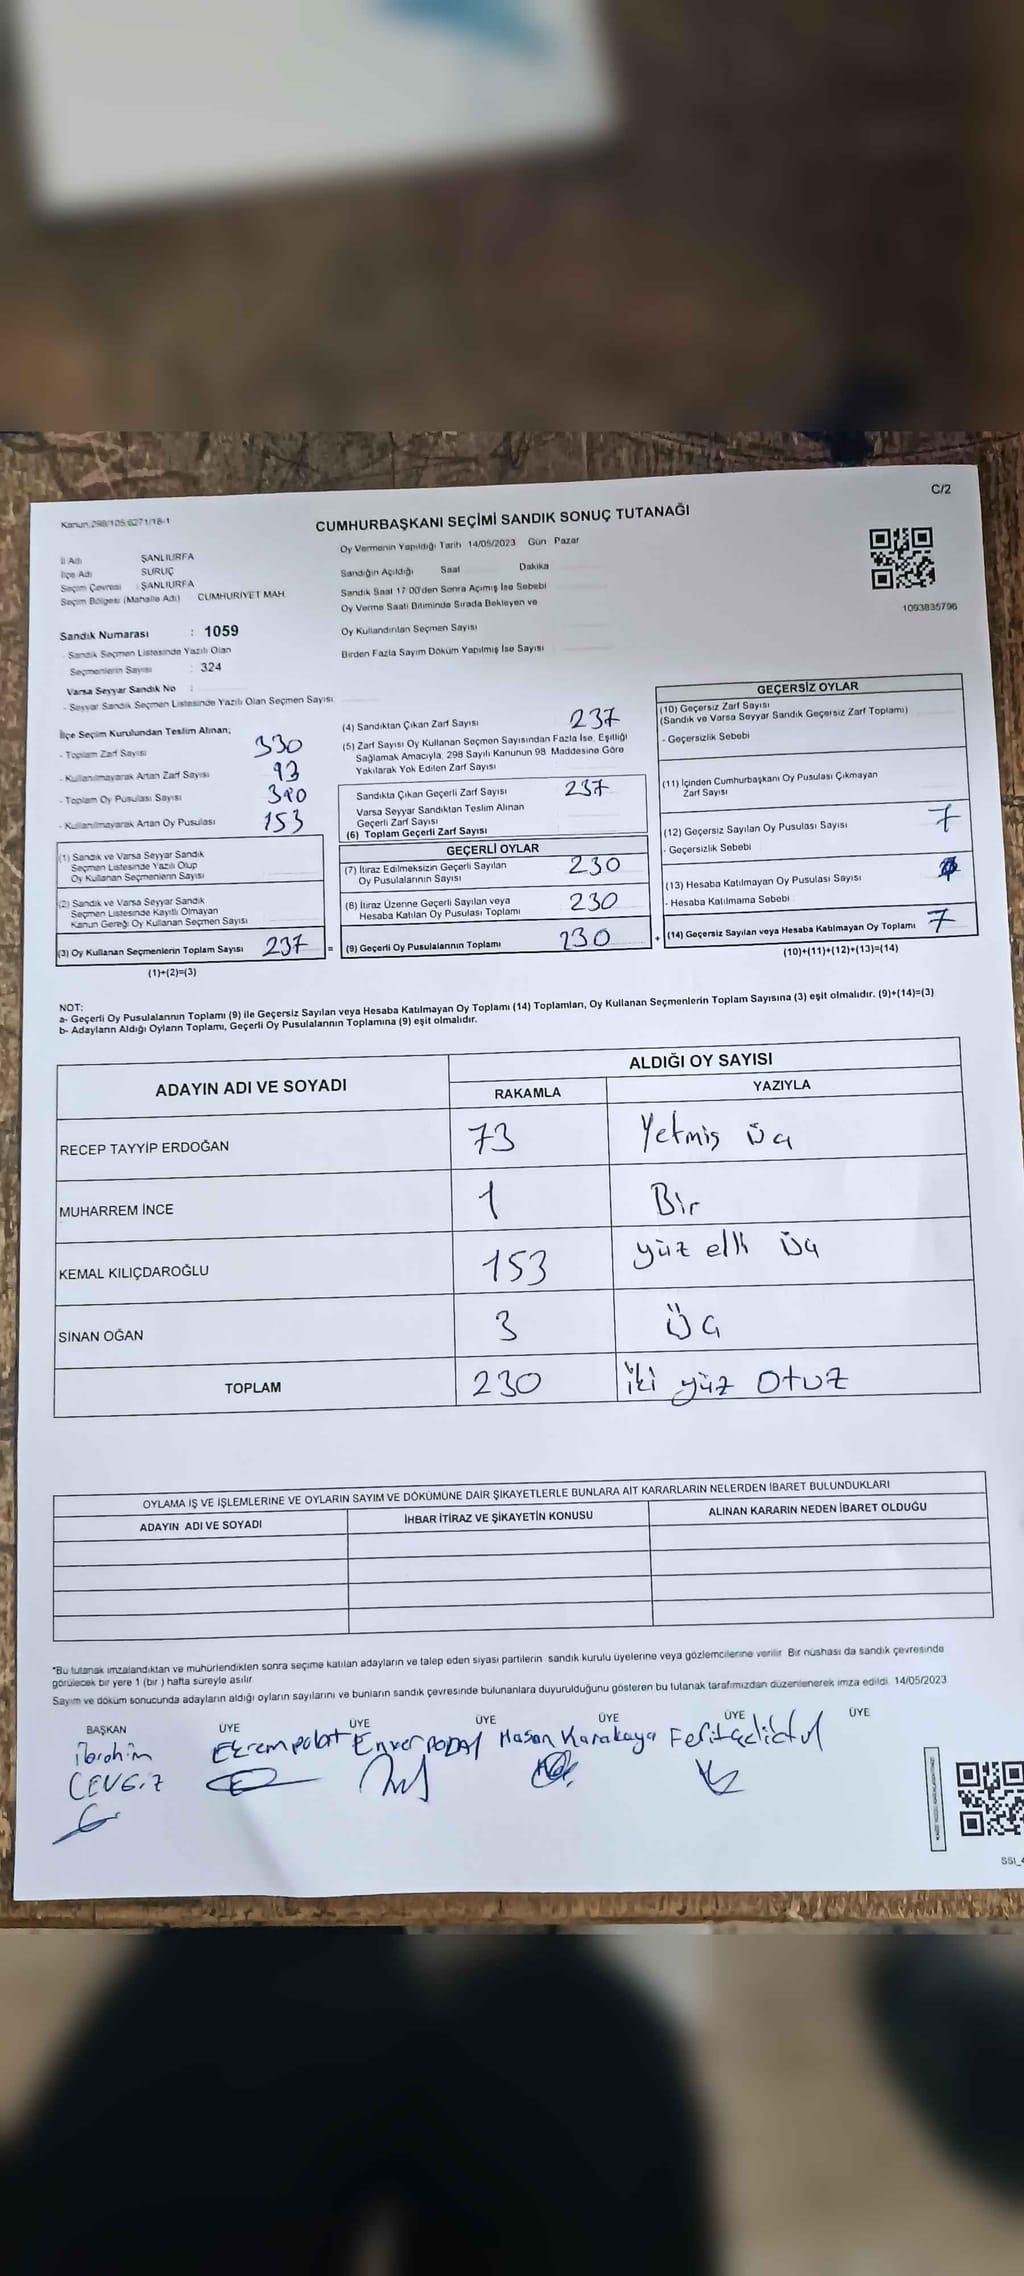 C/2
Kanun:298/105,6271/18-1
CUMHURBAŞKANI SEÇİMİ SANDIK SONUÇ TUTANAĞI
İl Adı ŞANLIURFA
İlçe Adı SURUÇ
Seçim Çevresi : ŞANLIURFA
Seçim Bölgesi (Mahalle Adı) CUMHURİYET MAH.
Sandık Numarası : 1059
- Sandık Seçmen Listesinde Yazılı Olan
Seçmenlerin Sayısı : 324
Varsa Seyyar Sandık No :
- Seyyar Sandık Seçmen Listesinde Yazılı Olan Seçmen Sayısı
Oy Vermenin Yapıldığı Tarih 14/05/2023 Gün Pazar
Sandığın Açıldığı Saat Dakika
Sandık Saat 17.00'den Sonra Açımış İse Sebebi
Oy Verme Saati Bitiminde Sırada Bekleyen ve
Oy Kullandırılan Seçmen Sayısı
Birden Fazla Sayım Döküm Yapılmış İse Sayısı
1093835796
İlçe Seçim Kurulundan Teslim Alınan;
- Toplam Zarf Sayısı 330
- Kullanılmayarak Artan Zarf Sayısı 93
- Toplam Oy Pusulası Sayısı
- Kullanılmayarak Artan Oy Pusulası 153
(1) Sandık ve Varsa Seyyar Sandık
Seçmen Listesinde Yazılı Olup
Oy Kullanan Seçmenlerin Sayısı
(2) Sandık ve Varsa Seyyar Sandık
Seçmen Listesinde Kayıtlı Olmayan
Kanun Gereği Oy Kullanan Seçmen Sayısı
(3) Oy Kullanan Seçmenlerin Toplam Sayısı 237 =
(1)+(2)=(3)
(4) Sandıktan Çıkan Zarf Sayısı 237
(5) Zarf Sayısı Oy Kullanan Seçmen Sayısından Fazla İse, Eşitliği
Sağlamak Amacıyla, 298 Sayılı Kanunun 98. Maddesine Göre
Yakılarak Yok Edilen Zarf Sayısı
Sandıkta Çıkan Geçerli Zarf Sayısı 237
Varsa Seyyar Sandıktan Teslim Alınan
Geçerli Zarf Sayısı
(6) Toplam Geçerli Zarf Sayısı
GEÇERLİ OYLAR
(7) İtiraz Edilmeksizin Geçerli Sayılan
Oy Pusulalarının Sayısı 230
(8) İtiraz Üzerine Geçerli Sayılan veya
Hesaba Katılan Oy Pusulası Toplamı 230
(9) Geçerli Oy Pusulalarının Toplamı 230 +
GEÇERSİZ OYLAR
(10) Geçersiz Zarf Sayısı
(Sandık ve Varsa Seyyar Sandık Geçersiz Zarf Toplamı)
- Geçersizlik Sebebi
(11) İçinden Cumhurbaşkanı Oy Pusulası Çıkmayan
Zarf Sayısı
(12) Geçersiz Sayılan Oy Pusulası Sayısı 7
- Geçersizlik Sebebi
(13) Hesaba Katılmayan Oy Pusulası Sayısı
- Hesaba Katılmama Sebebi
(14) Geçersiz Sayılan veya Hesaba Katılmayan Oy Toplamı 7
(10)+(11)+(12)+(13)=(14)
NOT:
a- Geçerli Oy Pusulalarının Toplamı (9) ile Geçersiz Sayılan veya Hesaba Katılmayan Oy Toplamı (14) Toplamları, Oy Kullanan Seçmenlerin Toplam Sayısına (3) eşit olmalıdır. (9)+(14)=(3)
b- Adayların Aldığı Oyların Toplamı, Geçerli Oy Pusulalarının Toplamına (9) eşit olmalıdır.
ADAYIN ADI VE SOYADI
ALDIĞI OY SAYISI
RAKAMLA YAZIYLA
RECEP TAYYİP ERDOĞAN 73 Yetmiş üç
MUHARREM İNCE 1 Bir
KEMAL KILIÇDAROĞLU 153 yüz elli üç
SİNAN OĞAN 3 üç
TOPLAM 230 iki yüz otuz
OYLAMA İŞ VE İŞLEMLERİNE VE OYLARIN SAYIM VE DÖKÜMÜNE DAİR ŞİKAYETLERLE BUNLARA AİT KARARLARIN NELERDEN İBARET BULUNDUKLARI
ADAYIN ADI VE SOYADI İHBAR İTİRAZ VE ŞİKAYETİN KONUSU ALINAN KARARIN NEDEN İBARET OLDUĞU
*Bu tutanak imzalandıktan ve mühürlendikten sonra seçime katılan adayların ve talep eden siyasi partilerin sandık kurulu üyelerine veya gözlemcilerine verilir. Bir nüshası da sandık çevresinde
görülecek bir yere 1 (bir ) hafta süreyle asılır.
Sayım ve döküm sonucunda adayların aldığı oyların sayılarını ve bunların sandık çevresinde bulunanlara duyurulduğunu gösteren bu tutanak tarafımızdan düzenlenerek imza edildi. 14/05/2023
BAŞKAN ÜYE ÜYE ÜYE ÜYE ÜYE ÜYE
İbrahim Ekrem polat Enver Hasan Karakaya Ferit
CENGİZ